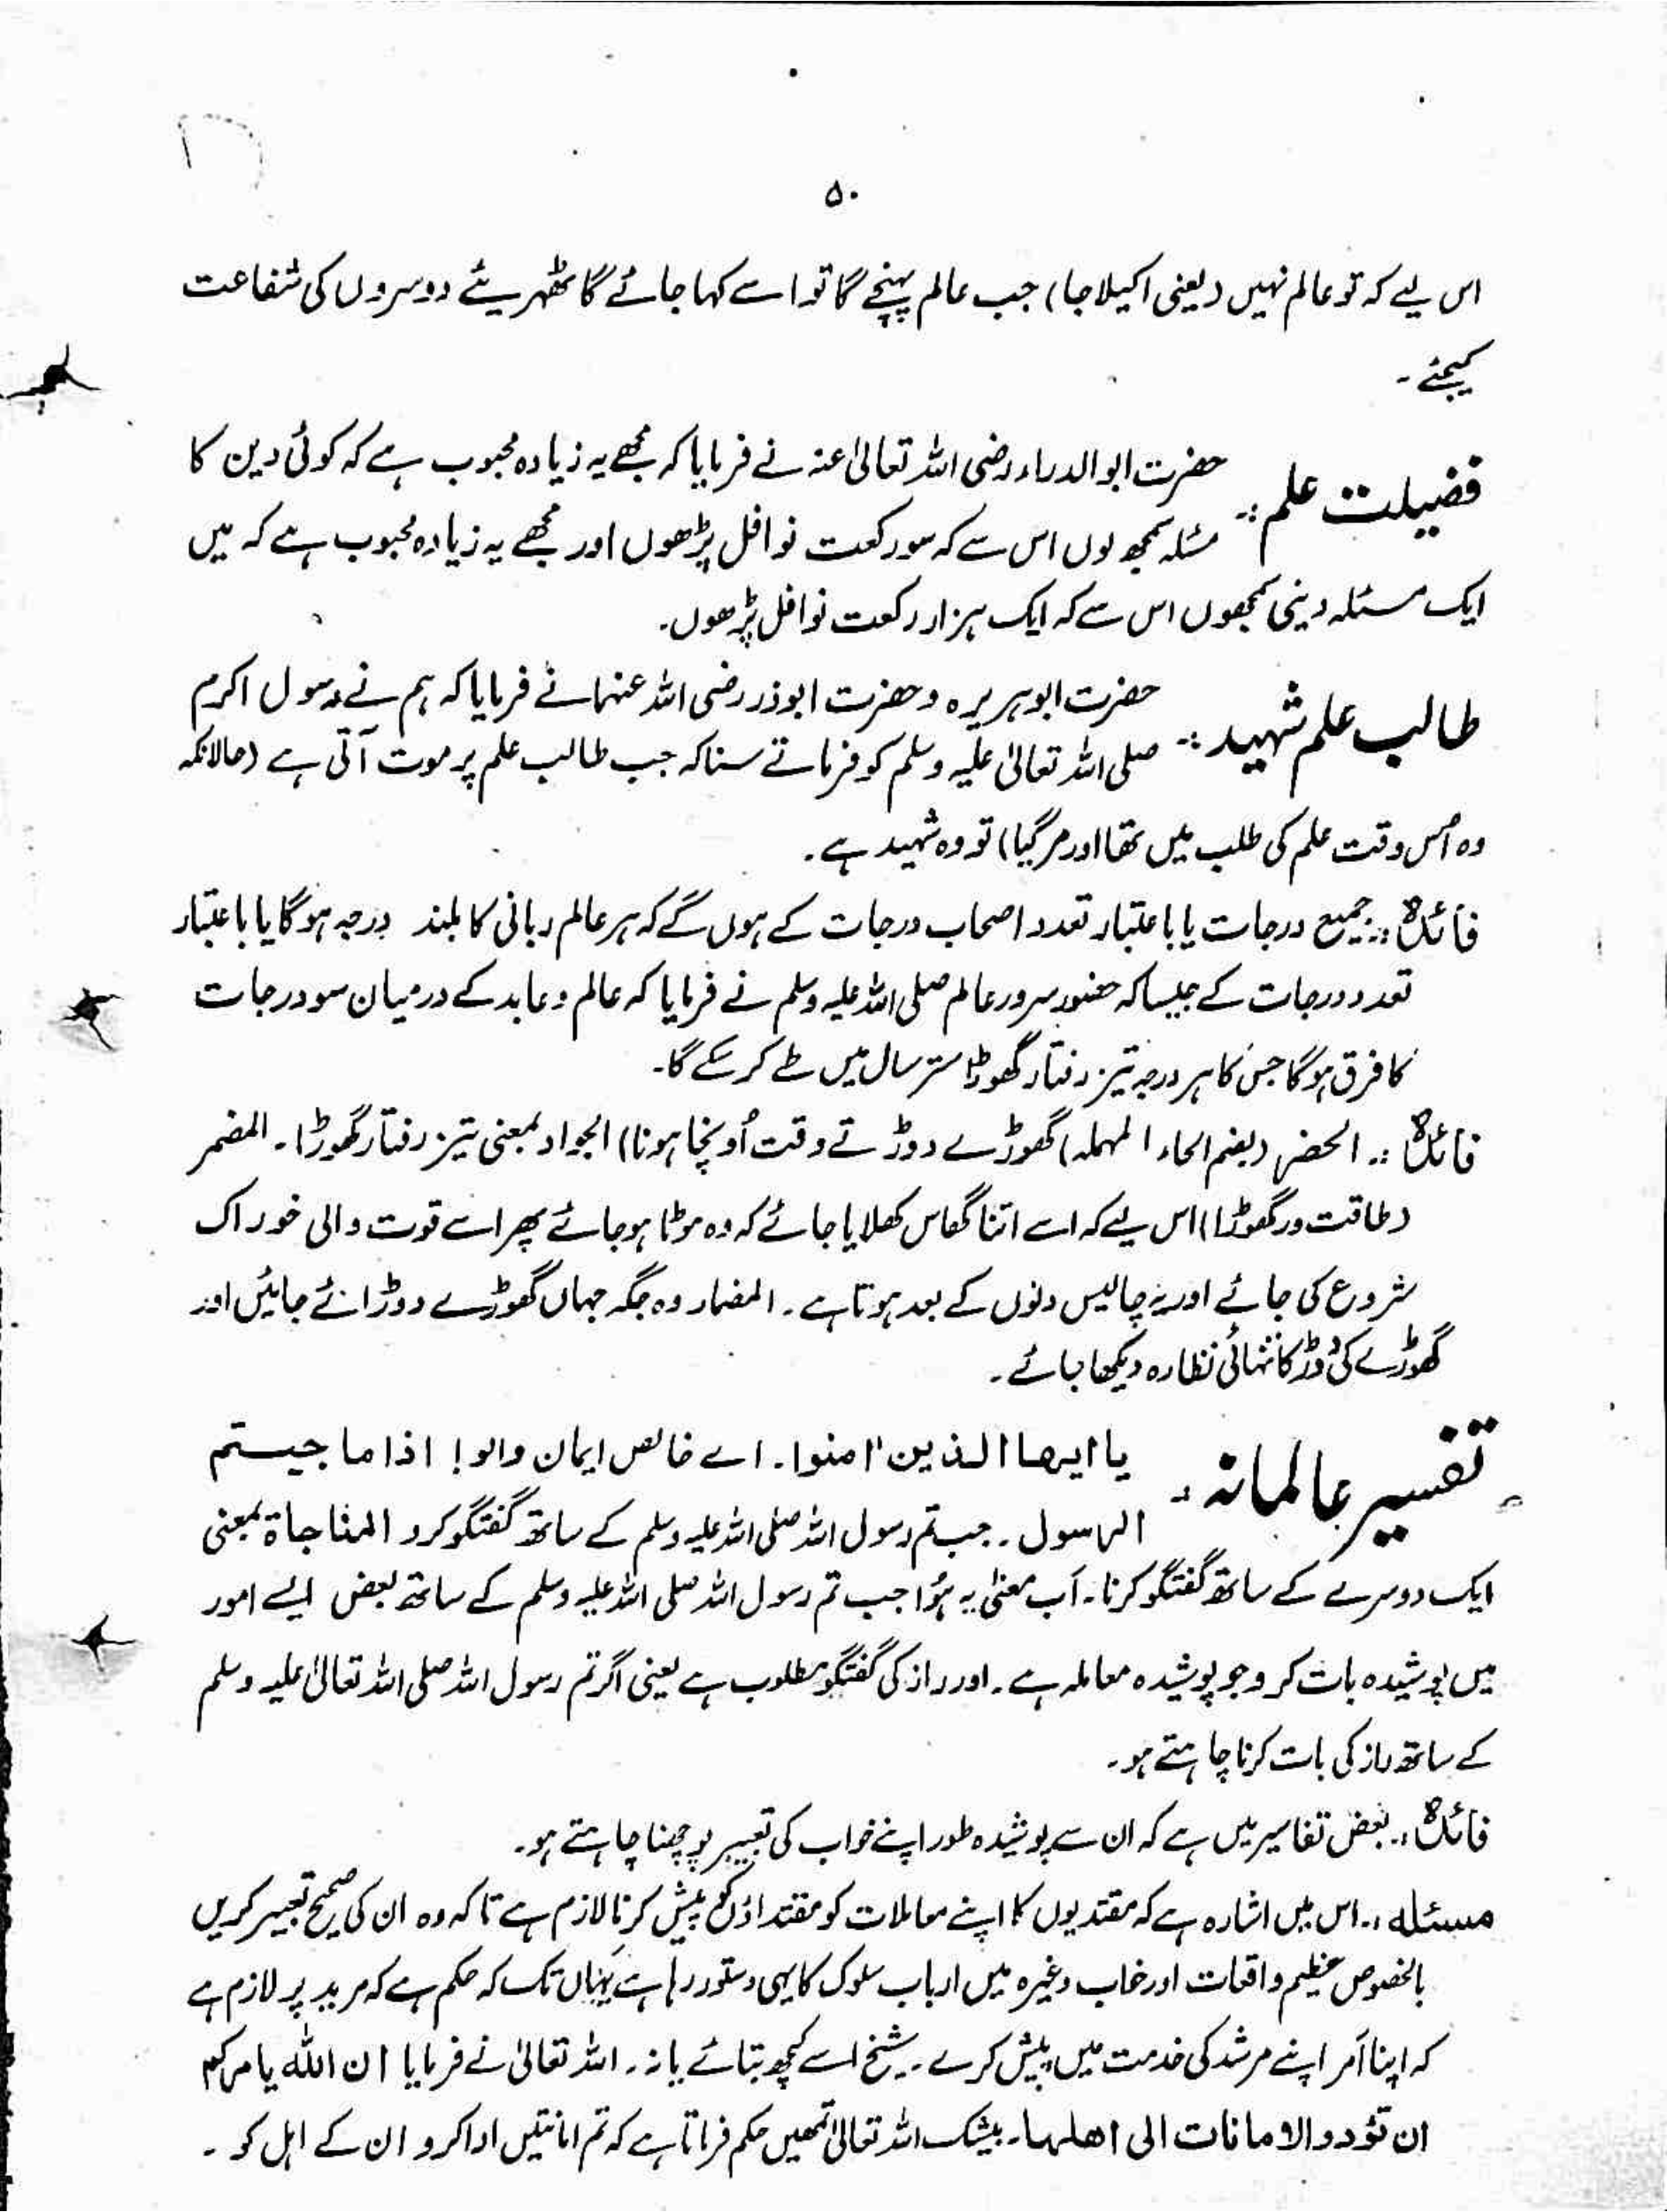 ۵۰
اس لیے کہ تو عالم نہیں (یعنی اکیلا جا) جب عالم پہنچے گا تو اسے کہا جائے گا ٹھہریئے دوسروں کی شفاعت
کیجئے ۔
فضیلت علم :۔ حضرت ابو الدرداء رضی اللہ تعالیٰ عنہ نے فرمایا کہ مجھے یہ زیادہ محبوب ہے کہ کوئی دین کا
مسئلہ سمجھ لوں اس سے کہ سو رکعت نوافل پڑھوں اور مجھے یہ زیادہ محبوب ہے کہ میں
ایک مسئلہ دینی سمجھوں اس سے کہ ایک ہزار رکعت نوافل پڑھوں۔
طالب علم شہید :۔ حضرت ابو ہریرہ و حضرت ابوذر رضی اللہ عنہما نے فرمایا کہ ہم نے رسول اکرم
صلی اللہ تعالیٰ علیہ وسلم کو فرماتے سنا کہ جب طالب علم پر موت آتی ہے (حالانکہ
وہ اُس وقت علم کی طلب میں تھا اور مر گیا) تو وہ شہید ہے ۔
فائدہ :۔ جمیع درجات یا باعتبار تعدد اصحاب درجات کے ہوں گے کہ ہر عالم ربانی کا بلند درجہ ہو گا یا باعتبار
تعدد درجات کے جیسا کہ حضور سرور عالم صلی اللہ علیہ وسلم نے فرمایا کہ عالم و عابد کے درمیان سو درجات
کا فرق ہو گا جس کا ہر درجہ تیز رفتار گھوڑا ستر سال میں طے کر سکے گا۔
فائدہ :۔ الحضر (بضم الحاء المہملہ) گھوڑے دوڑتے وقت اُونچا ہونا) الجواد بمعنی تیز رفتار گھوڑا ۔ المضمر
(طاقت ور گھوڑا) اس لیے کہ اسے اتنا گھاس کھلایا جائے کہ وہ موٹا ہو جائے پھر اسے قوت والی خوراک
شروع کی جائے اور یہ چالیس دنوں کے بعد ہوتا ہے ۔ المضمار وہ جگہ جہاں گھوڑے دوڑائے جائیں اور
گھوڑے کی دوڑ کا نتہائی نظارہ دیکھا جائے ۔
تفسیر عالمانہ :۔ یا ایھا الذین اٰمنوا ۔ اے خالص ایمان والو! اذا ما جیستم
الرسول ۔ جب تم رسول اللہ صلی اللہ علیہ وسلم کے ساتھ گفتگو کرو المناجاۃ بمعنی
ایک دوسرے کے ساتھ گفتگو کرنا ۔ اَب معنیٰ یہ ہُوا جب تم رسول اللہ صلی اللہ علیہ وسلم کے ساتھ بعض ایسے امور
میں پوشیدہ بات کرو جو پوشیدہ معاملہ ہے ۔ اور راز کی گفتگو مطلوب ہے یعنی اگر تم رسول اللہ صلی اللہ تعالیٰ علیہ وسلم
کے ساتھ راز کی بات کرنا چاہتے ہو ۔
فائدہ :۔ بعض تفاسیر میں ہے کہ ان سے پوشیدہ طور اپنے خواب کی تعبیر پوچھنا چاہتے ہو ۔
مسئلہ :۔ اس میں اشارہ ہے کہ مقتدیوں کا اپنے معاملات کو مقتداؤں کو پیش کرنا لازم ہے تا کہ وہ ان کی صحیح تعبیر کریں
بالخصوص عظیم واقعات اور خواب وغیرہ میں ارباب سلوک کا یہی دستور رہا ہے یہاں تک کہ حکم ہے کہ مرید پر لازم ہے
کہ اپنا اَمر اپنے مرشد کی خدمت میں پیش کرے ۔ شیخ اسے کچھ بتائے یا نہ ۔ اللہ تعالیٰ نے فرمایا ان اللہ یامرکم
ان تؤدوا الامانات الی اھلھا ۔ بیشک اللہ تعالیٰ تمھیں حکم فرماتا ہے کہ تم امانتیں ادا کرو ان کے اہل کو ۔